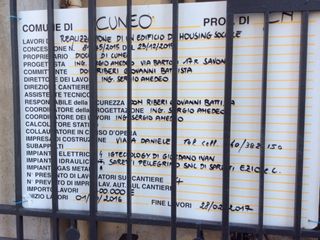 COMUNE DI CUNEO PROV. DI CN
LAVORI DI REALIZZAZIONE DI UN EDIFICIO DI HOUSING SOCIALE
CONCESSIONE N. /2015 DEL 29/12/2015
PROPRIETARIO DIOCESI DI CUNEO
PROGETTISTA ING. SERGIO AMEDEO VIA BARTOLI 17R SAVONA
COMMITTENTE DON RIBERI GIOVANNI BATTISTA
DIRETTORE DEI LAVORI ING. SERGIO AMEDEO
DIREZIONE CANTIERE
ASSISTENTE TECNICO
RESPONSABILE della SICUREZZA DON RIBERI GIOVANNI BATTISTA
COORDINATORE della PROGETTAZIONE ING. SERGIO AMEDEO
COORDINATORE DEI LAVORI ING. SERGIO AMEDEO
CALCOLATORE STATICO
COLLAUDATORE IN CORSO D'OPERA
IMPRESA DI COSTRUZIONE VIARA DANIELE
SUBAPPALTI
IMPIANTI ELETTRICI IGTECOLOGY DI GIORDANO IVAN
IMPIANTI IDRAULICI SAROTTI PELLEGRINO SNC DI SAROTTI EZIO & C.
IMPIANTI GAS METANO
N° PRESUNTO DI LAVORATORI SUL CANTIERE
N° PREVISTO DI IMPR. E LAV. AUT. SUL CANTIERE
IMPORTO LAVORI
INIZIO LAVORI 2016 FINE LAVORI 28/02/2017